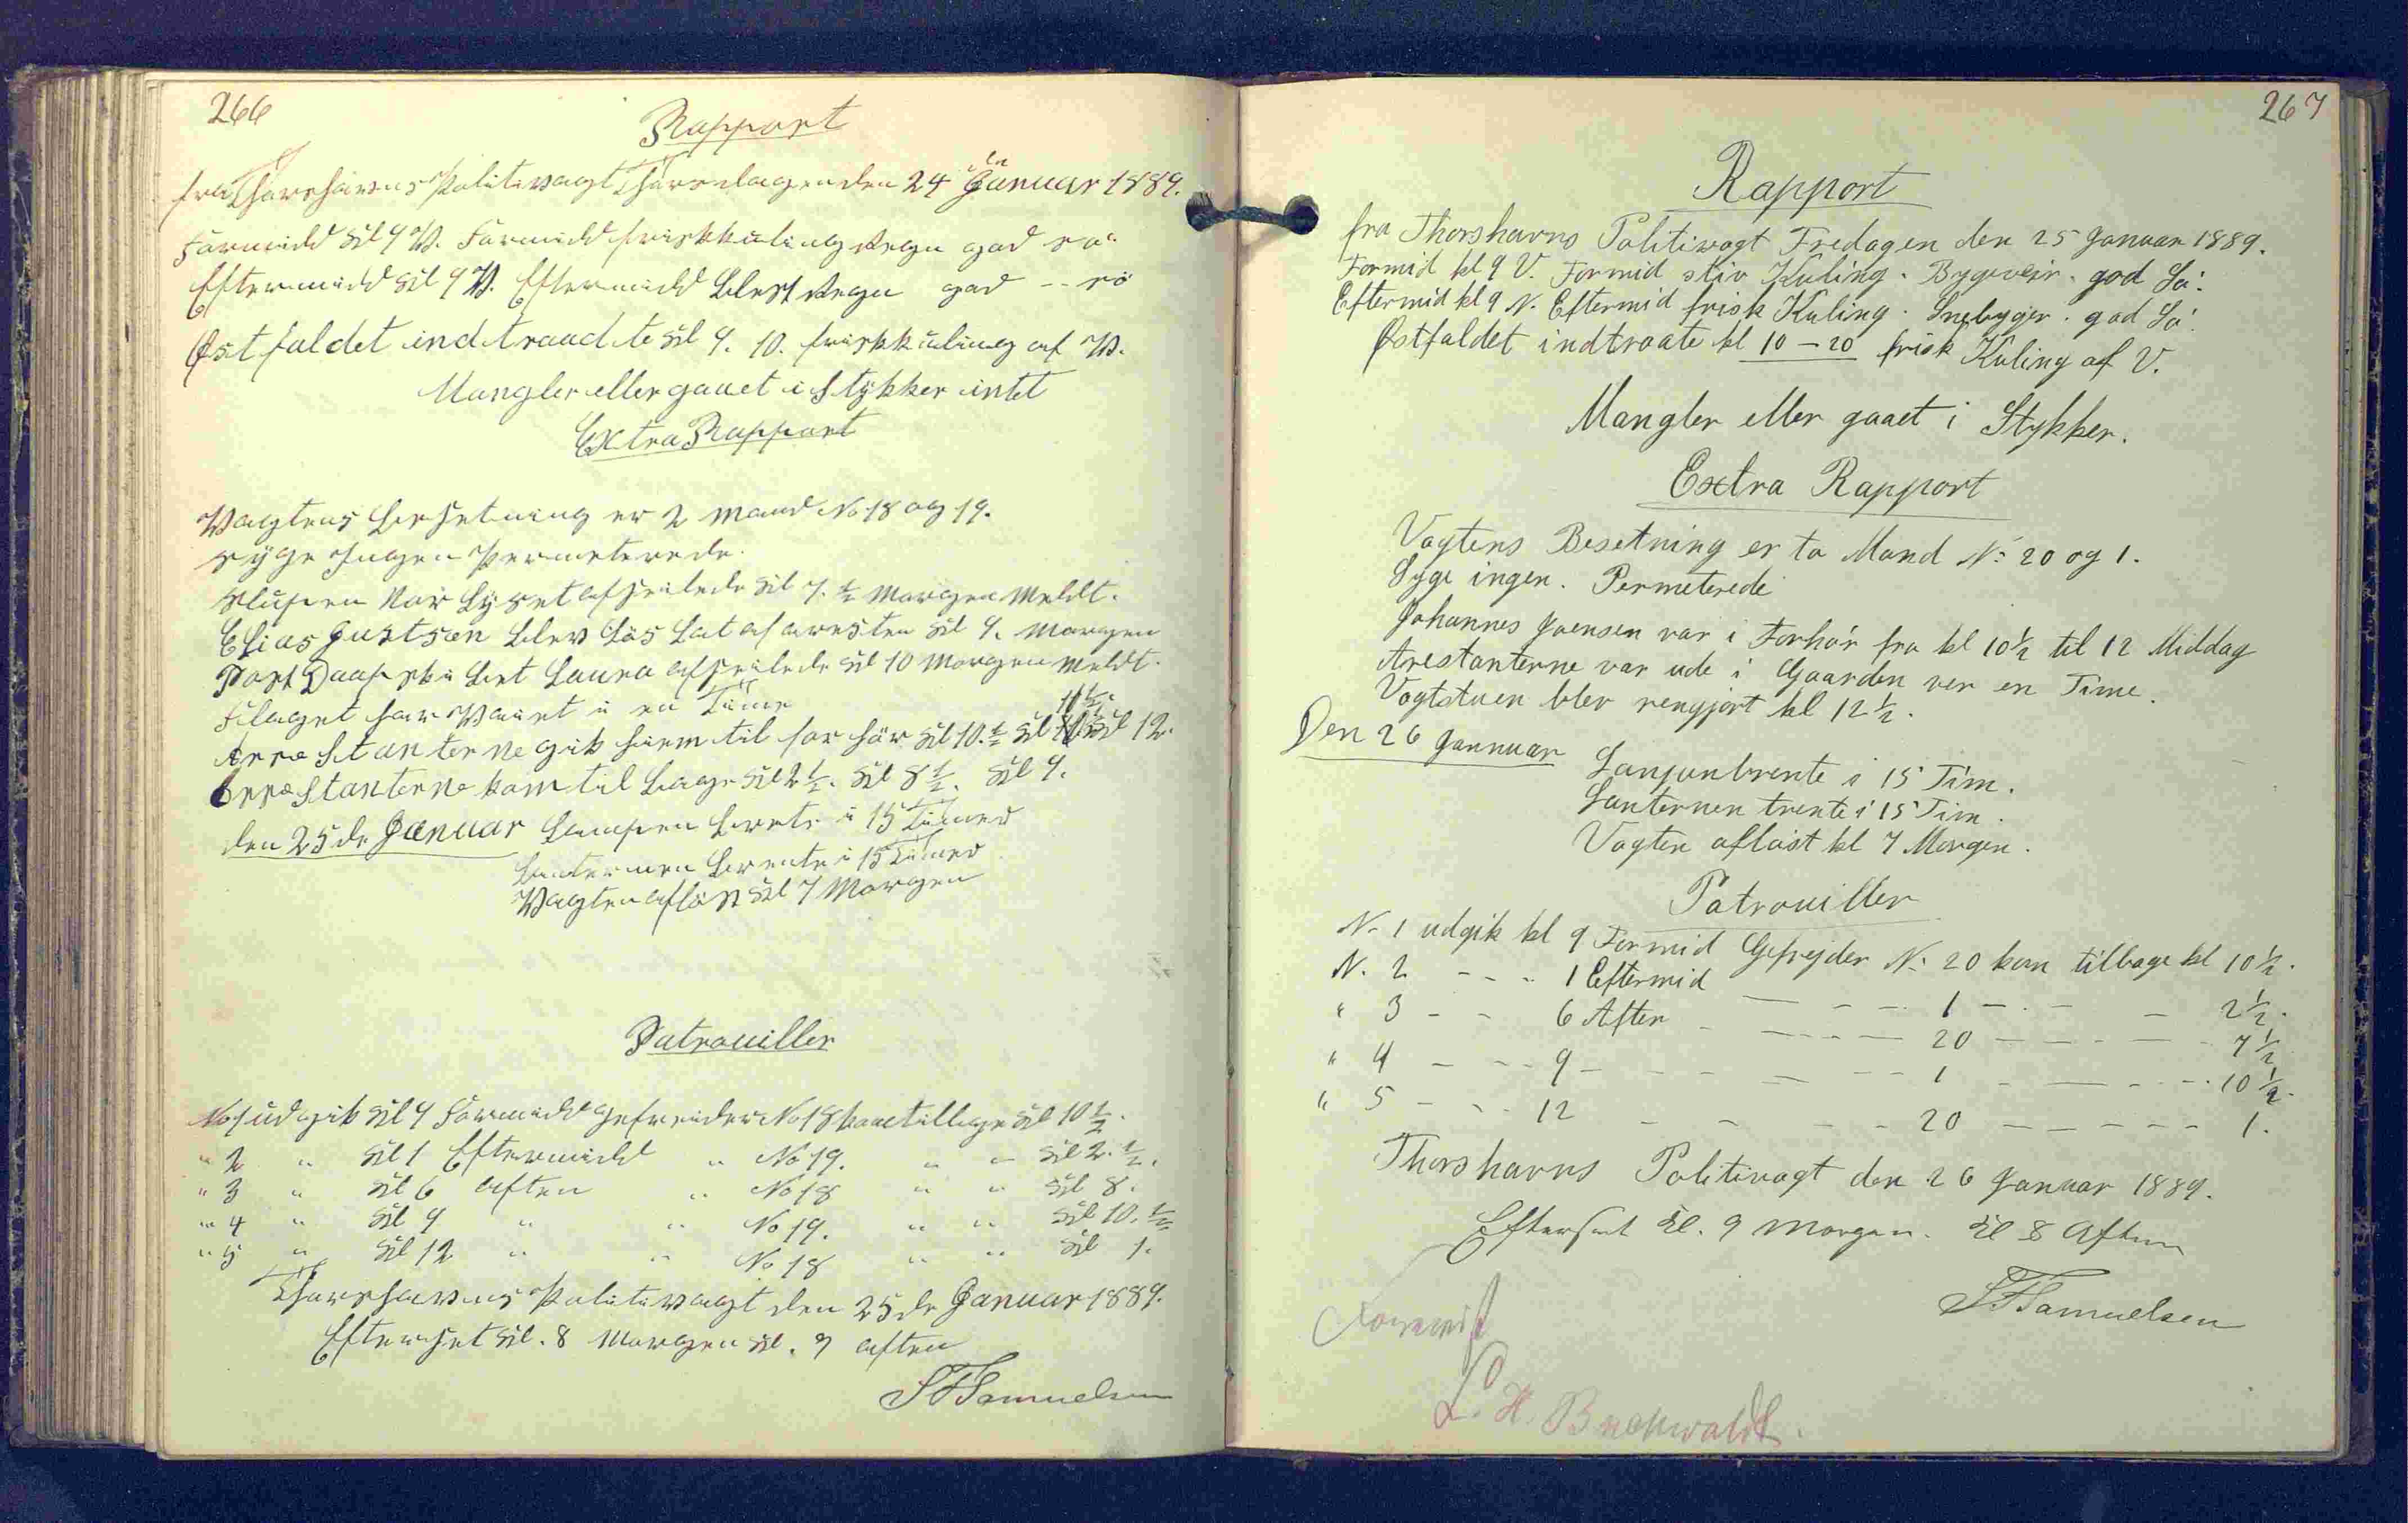 266
Rapport
fra Thorshavns Politivagt Thorsdagen den 24 de Januar 1889.
Formidd Kl 9 V. Formidd friskkuling regn god sø
Eftermidd Kl 9 V. Eftermidd blest regn god -- sø
Østfaldet indtraadte Kl 9. 10. friskkuling af V.
Mangler eller gaaet i Stykker intet
Extra Rapport
Vagtens besetning er 2 mand No 18 og 19.
syge Ingen Permeterede.
Slupen Nor Lyset afseilede Kl 7. ½ Morgen Meldt.
Elias Justsen blev Løs Lat af aresten Kl 9. Morgen
Post Laura afseilede Kl 10 Morgen Meldt.
Flaget har Vaiet i en Time
Arrestanterne gik hjem til forhør Kl 10. ½ Kl 11 ½ Kl 12.
Arrestanterne kom til bage Kl 2 ½. Kl 8 ½. Kl 9.
den 25 de Januar Lampen brente i 15 Timer
Lanternen brente i 15 Timer
Vagten afløst Kl 7 Morgen
Patrouiller
No 1 udgik Kl 9 Formidd gefreider No 18 kom tilbage Kl 10 ½.
" 2 " Kl 1 Eftermidd " No 19. " " Kl 2. ½.
" 3 " Kl 6 aften " No 18 " " Kl 8.
" 4 " Kl 9 " " No 19. " " Kl 10. ½
" 5 " Kl 12 " " No 18 " " Kl 1.
Thorshavns Politivagt den 25 de Januar 1889.
Efterset Kl. 8 Morgen Kl. 9 aften
SFSamuelsen
267
Rapport
fra Thorshavns Politivagt Fredagen den 25 Januar 1889.
Formid kl 9 V. Formid stiv Kuling. Bygeveir. god Sø.
Eftermid kl 9 N. Eftermid frisk Kuling. Snebyger. god Sø.
Østfaldet indtraate kl 10 – 20 frisk Kuling af V.
Mangler eller gaaet i Stykker.
Extra Rapport
Vagtens Besetning er to Mand N: 20 og 1.
Syge ingen. Permeterede
Johannes Joensen var i Forhør fra kl 10½ til 12 Middag
Arestanterne var ude i Gaarden ver en Time.
Vagtstuen blev rengjort kl 12 ½.
Den 26 Jannuar Lampen brente i 15 Tim.
Lanternen brente i 15 Tim.
Vagten afløst kl 7 Morgen.
Patrouiller
N. 1 udgik kl 9 Formid Gefrejder N: 20 kom tilbage kl 10 ½.
N. 2 - - - 1 Eftermid — - - - 1 - . - - 2 ½.
" 3 - - 6 Aften - - - - - 20 - - - - - 7 ½
" 4 - - - 9 - - - - - 1 - - - - - 10 ½.
" 5 - - - 12 - - - - 20 - - - - - 1.
Thorshavns Politivagt den 26 Januar 1889.
Efterset Kl. 9 Morgen. Kl 8 Aften
SFSamuelsen
L. H. Buchwaldt.